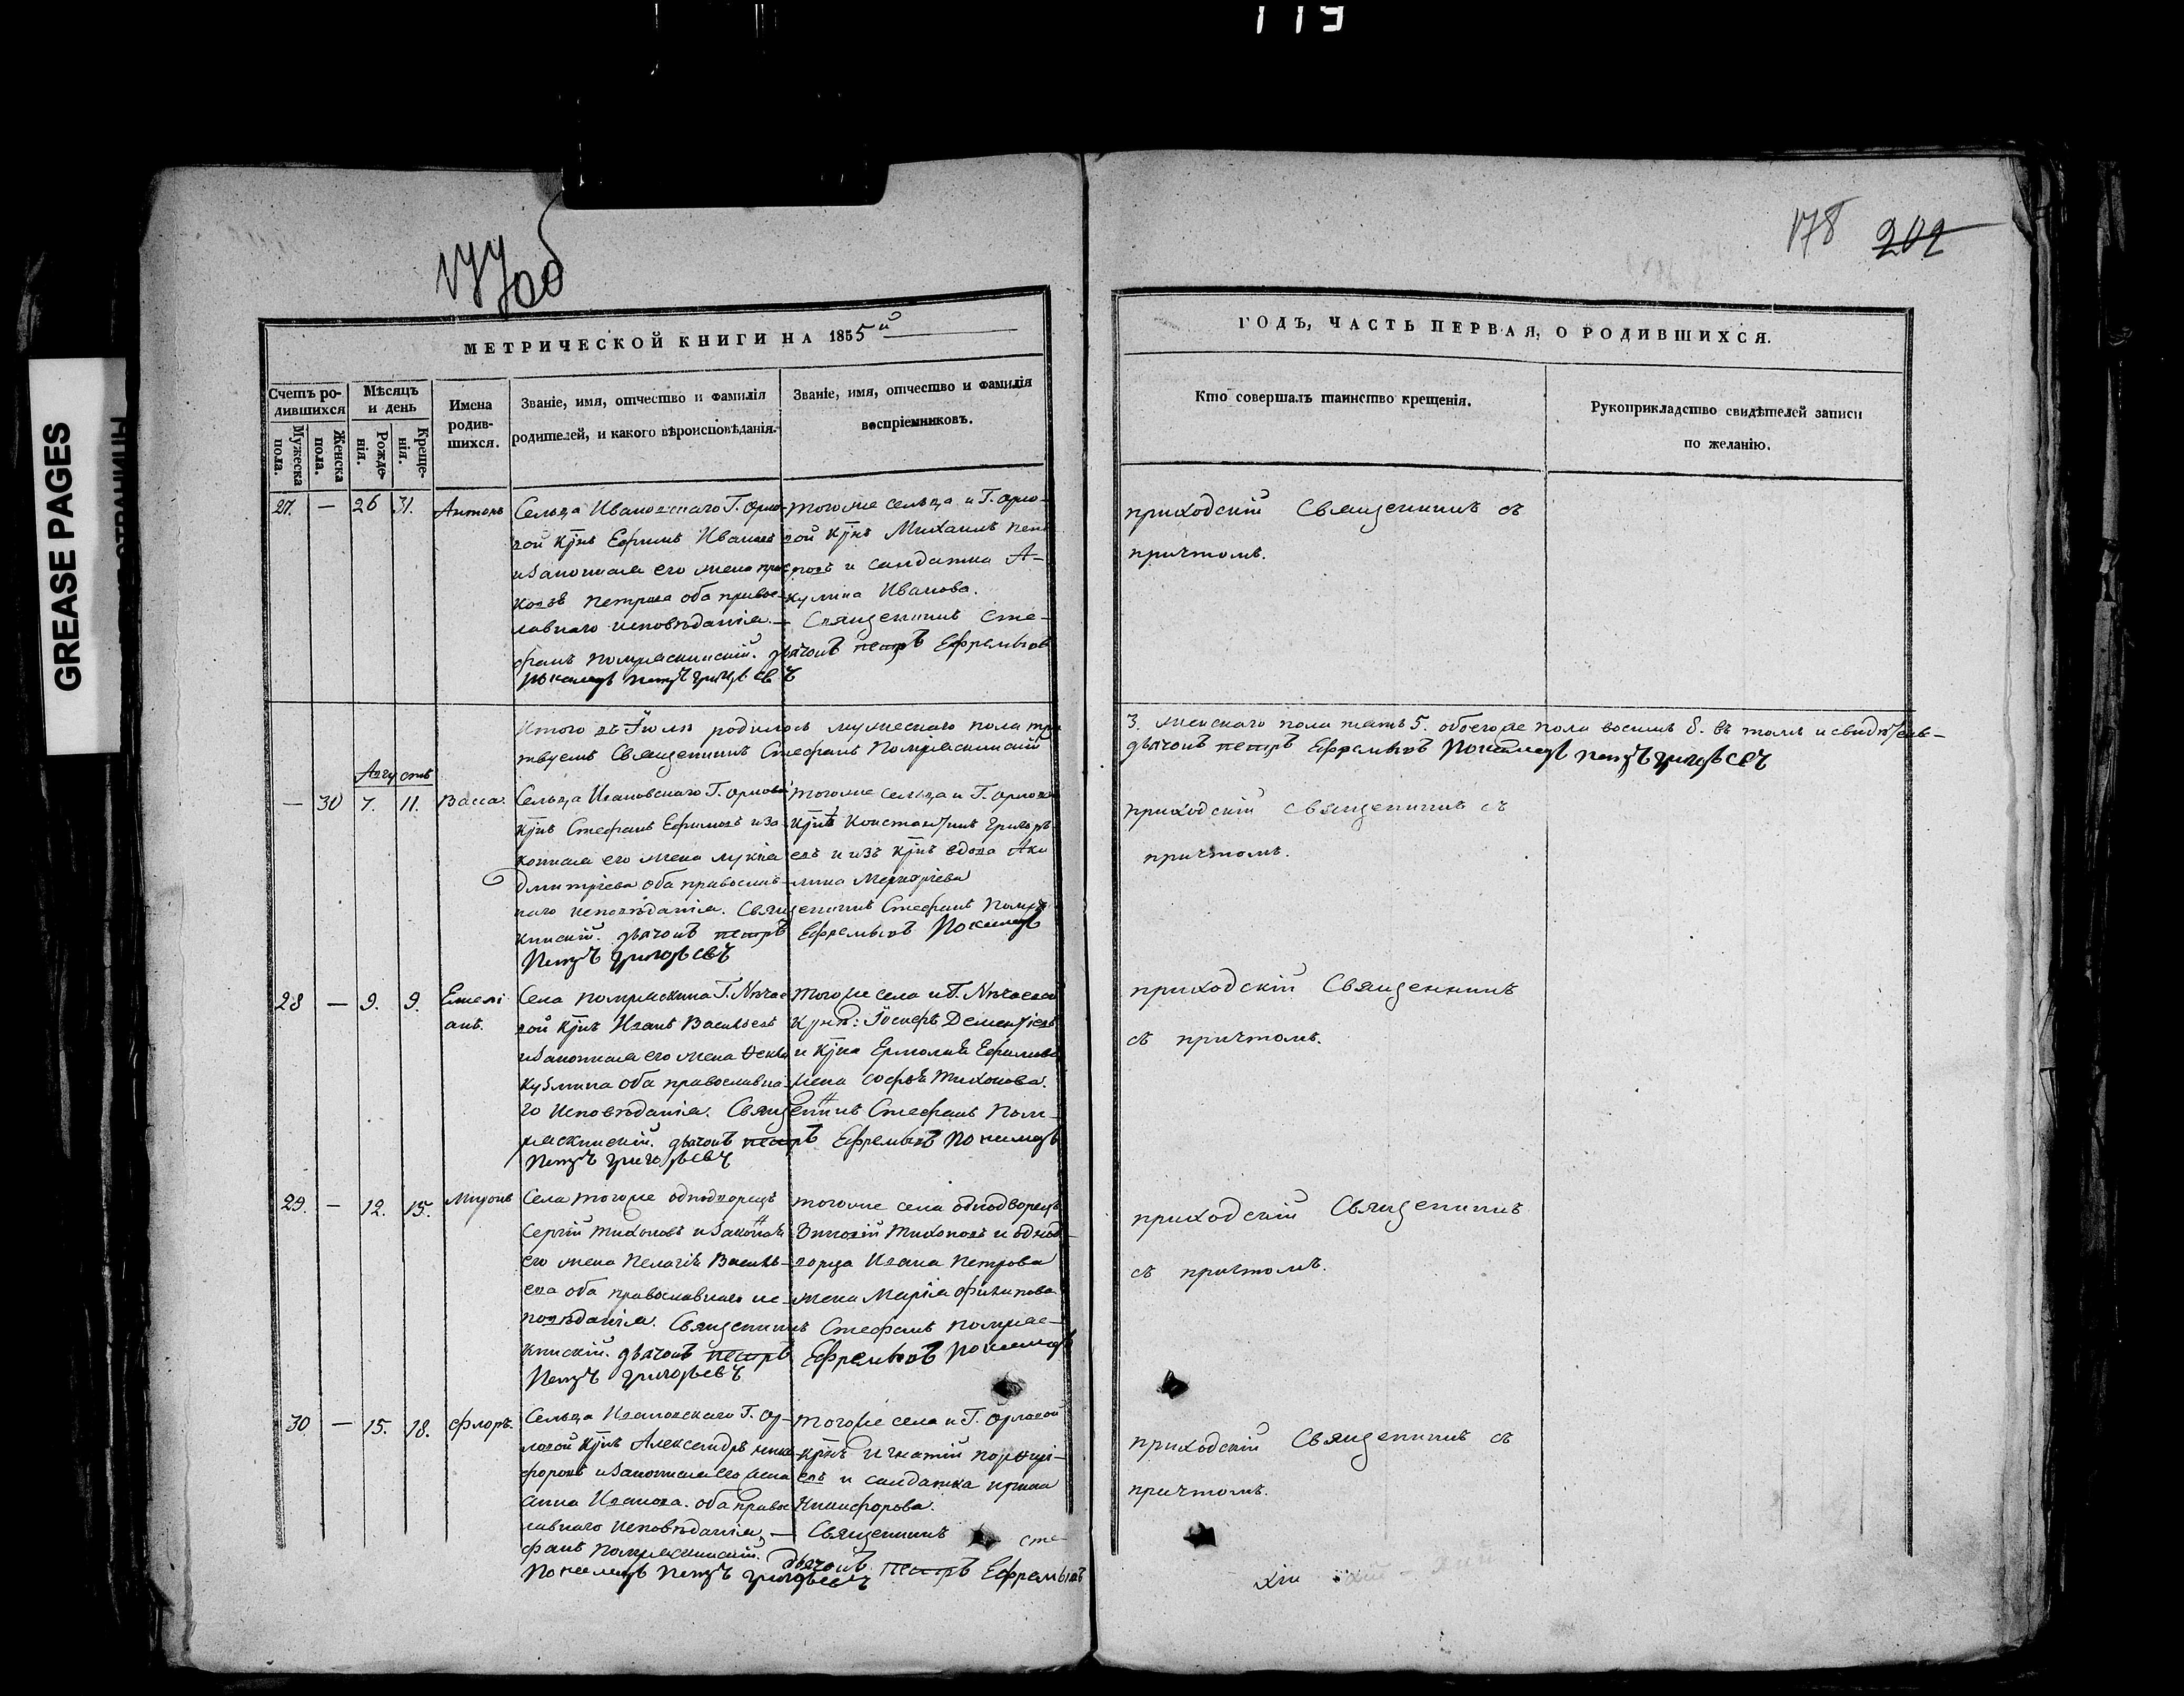 119
GREASE PAGES
177об
178 202
МЕТРИЧЕСКОЙ КНИГИ НА 1855й
ГОДЪ, ЧАСТЬ ПЕРВАЯ, О РОДИВШИХСЯ.
Счетъ родившихся
Мужеска пола.
Женска пола.
Мѣсяцъ и день
Рожденія.
Крещенія.
Имена родившихся.
Званіе, имя, отчество и фамилія
родителей, и какого вѣроисповѣданія.
Званіе, имя, отчество и фамилія
воспріемниковъ.
Кто совершалъ таинство крещенія.
Рукоприкладство свидѣтелей записи
по желанію.
27. — 26 31. Антонъ
Сельца Ивановскаго Г. Орло-
вой кр̃нъ Ефимъ Ивановъ
и законная его жена Прас-
ковья Петрова оба правос-
лавнаго исповѣданія. — Священникъ Сте-
фанъ Помряскинскій. дьячокъ петръ Ефремовъ
Пономарь Петръ Григорьевъ
тогоже сельца и Г. Орло-
вой кр̃нъ Михаилъ Пет-
ровъ и салдатка А-
кулина Иванова.
приходскій Священникъ съ
причтомъ.
Итого въ Іюлѣ родилось мужескаго пола три
3. женскаго пола пять 5. обоего же пола восемь 8. въ томъ и свидѣтельс-
твуемъ Священникъ Стефанъ Помряскинскій
дьячокъ петръ Ефремовъ Пономарь Петръ Григорьевъ
Августъ
— 30 7. 11. Васса.
Сельца Ивановскаго Г. Орловой
кр̃нъ Стефанъ Ефимовъ и за-
конная его жена Лукия
Дмитріева оба православ-
наго исповѣданія. Священникъ Стефанъ Помряс-
кинскій. дьячокъ петръ Ефремовъ Пономарь
Петръ Григорьевъ
тогоже сельца и Г. Орловой
кр̃нъ Константинъ Григорь-
евъ и изъ кр̃нъ вдова Аку-
лина Меркріева
приходскій священникъ съ
причтомъ.
28 — 9. 9. Емелі-
анъ.
Села Помряскина Г. Нѣчае-
вой кр̃нъ Иванъ Васильевъ
и законная его жена Ѳекла
Кузмина оба православна-
го исповѣданія. Священникъ Стефанъ Пом-
ряскинскій. дьячокъ петръ Ефремовъ Пономарь
Петръ Григорьевъ
тогоже села и Г. Нѣчаевой
крнъ: Іосифъ Дементіевъ
и кр̃на Ермолая Ефимова
жена Софья Тихонова.
приходскій Священникъ
съ причтомъ.
29. — 12. 15. Миронъ
Села тогоже однодворецъ
Сергій Тихоновъ и законая
его жена Пелагія Василь-
ева оба православнаго ис-
повѣданія. Священникъ Стефанъ Помряс-
кинскій. дьячокъ петръ Ефремовъ Пономарь
Петръ Григорьевъ
тогоже села однодворецъ
Зиновій Тихоновъ и однод-
ворца Ивана Петрова
жена Марія Филипова
приходскій Священникъ
съ причтомъ.
30 — 15. 18. Флоръ.
Сельца Ивановскаго Г. Ор-
ловой кр̃нъ Александръ Ники-
форовъ и законная его жена
Анна Иванова. оба правос-
лавнаго исповѣданія, — Священникъ Сте-
фанъ Помряскинскій. дьячокъ петръ Ефремовъ
Пономарь Петръ Григорьевъ
тогоже села и Г. Орловой
кр̃нъ Игнатій
евъ и салдатка Ирина
Никифорова.
приходскій Священникъ съ
причтомъ.